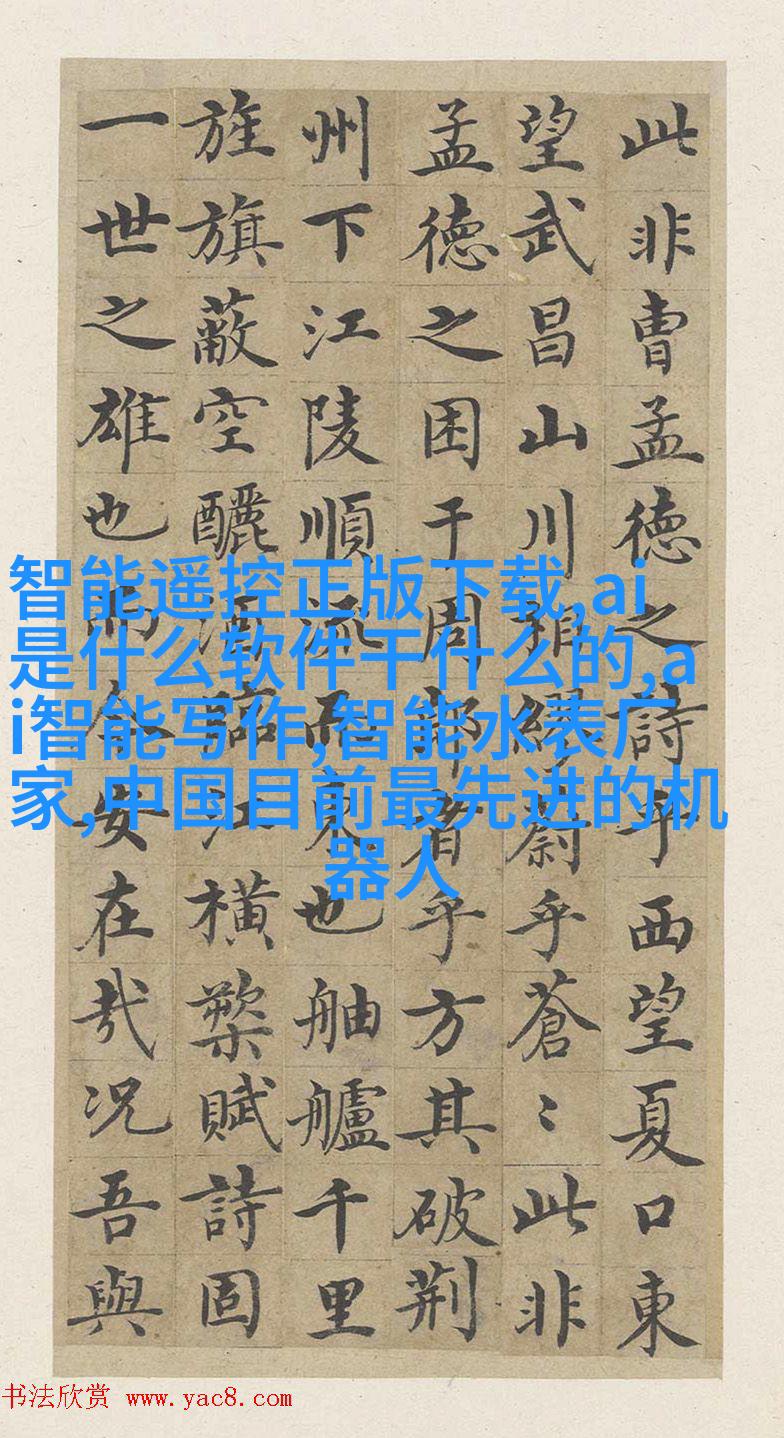 此非曹孟德之詩乎西望夏口東
望武昌山川相繆蔚乎蒼〻此非
孟德之困于周郎者乎方其破荆
州下江陵順流而東也舳艫千里
旌旗蔽空釃酒臨江橫槊賦詩固
一世之雄也而今安在哉况吾與
智能遥控正版下载,ai
是什么软件干什么的,a
i智能写作,智能水表厂
家,中国目前最先进的机
器人
书法欣赏 www.yac8.com